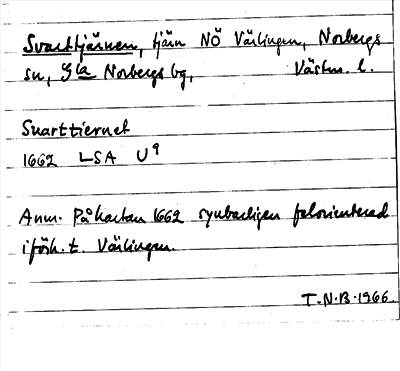 Svarttjärnen, tjärn NÖ Väslingen, Norbergs
sn, Gla Norbergs bg, Västm. l.
Suarttiernet
1662 LSA U9
Anm. På kartan 1662 synbarligen felorienterad
i förh. t. Väslingen.
T.N.B. 1966.